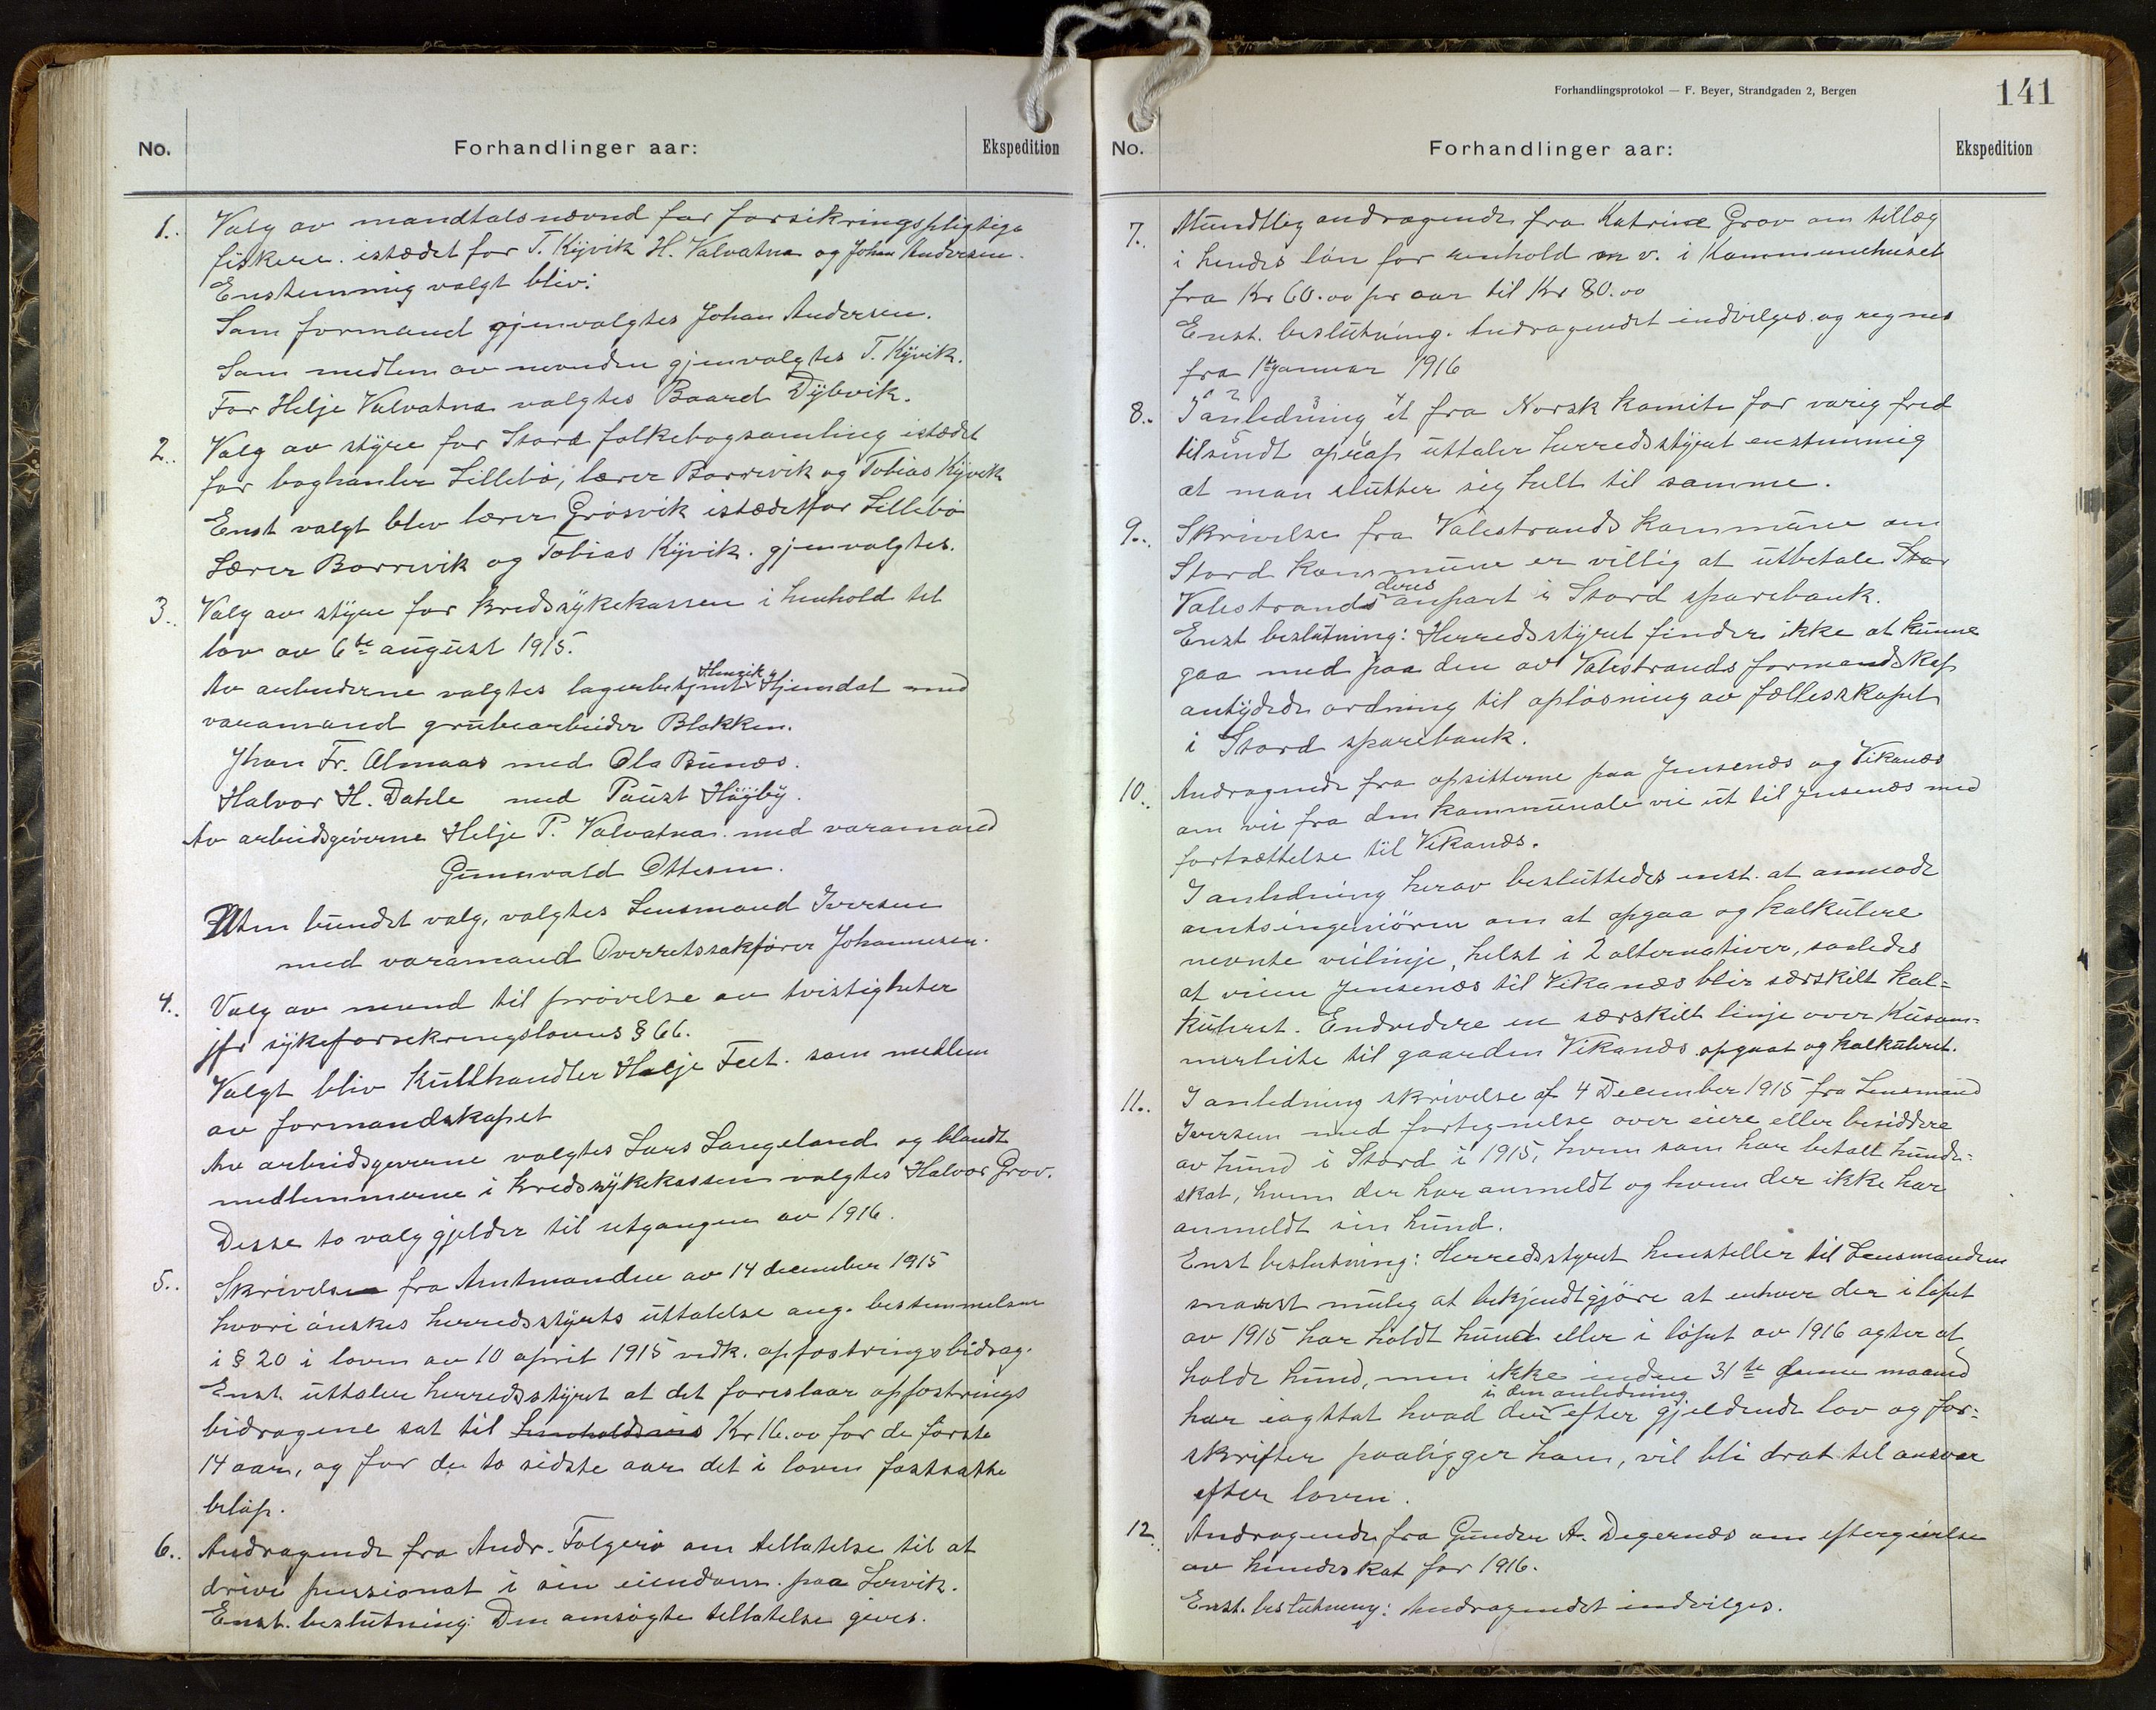 No.
Forhandlinger aar:
Ekspedition
1. Valg av mandtalsnævnd for forsikringspligtige
fiskere. istædet for T. Kyvik H. Valvatna og Johan Andersen.
Enstemmig valgt bliv:
Som formand gjenvalgtes Johan Andersen.
Som medlem av nevnden gjenvalgtes T. Kyvik.
For Helje Valvatna valgtes Baard Dybvik.
2. Valg av styre for Stord folkebogsamling istædet
for boghanler Lillebö, lærer Borrevik og Tobias Kyvik
Enst valgt blev lærer Grösvik istædetfor Lillebö
Lærer Borrevik og Tobias Kyvik. gjenvalgtes.
3. Valg av styre for Kredssykekassen i henhold til
lov av 6te august 1915.
Av arbeiderne valgtes lagerbetjent Henrik Hjemdal med
varamand grubearbeider Blokken.
Johan Fr. Almaas med Ola Bunæs.
Halvor H. Dahle med Paust Högby.
Av arbeidsgiverne Helje P. Valvatna med varamand
Gunnvald Ottesen.
Uten bundet valg, valgtes Lensmand Iversen
med varamand Overretssakfører Johannesen.
4. Valg av nevnd til prövelse av tvistigheter
jfr sykeforsekringslovens § 66.
Valgt bliv Kullhandler Helje Feet. som medlem
av formandskapet
Av arbeidsgeverne valgtes Lars Langeland og blandt
medlemmerne i Kredssykekassen valgtes Halvor Grov.
Desse to valg gjelder til utgangen av 1916.
5. Skrivelse fra Amtmanden av 14 december 1915
hvori önskes herredsstyrets uttalelse ang. bestemmelsen
i § 20 i loven av 10 april 1915 vedk. opfostringsbidrag.
Enst. uttaler herredsstyret at det foreslaar opfostrings
bidragene sat til henholdsvis Kr 16.00 for de første
14 aar, og for de to sidste aar det i loven fastsatte
beløp.
6. Andragende fra Andr. Folgerö om tellatelse til at
drive pensionat i sin eiendom paa Lervik.
Enst. beslutning: Den omsögte tellatelse gives.
Forhandlingsprotokol — F. Beyer, Strandgaden 2, Bergen
141
No.
Forhandlinger aar:
Ekspedition
7. Mundtlig andragende fra Katrine Grov om tillæg
i hendes lön for renhold m v. i Kommunehuset
fra Kr 60.00 pr aar til Kr 80.00
Enst. beslutning. Andragendet indvilges og regnes
fra 1te januar 1916
8. I anledning et fra Norsk komite for varig fred
tilsendt oprop uttaler herredsstyret enstemmig
at man slutter sig helt til samme.
9. Skrivelse fra Valestrands kommune om
Stord kommune er villig at utbetale Stor
Valestrands deres anpart i Stord sparebank.
Enst beslutning: Herredsstyret finder ikke at kunne
gaa med paa den av Valestrands formandskap
antydede ordning til oplösning av fællesskapet
i Stord sparebank.
10. Andragende fra opsitterne paa Jensenæs og Vikanæs
om vei fra den kommunale vei ut til Jensenæs med
fortsættelse til Vikanæs.
I anledning herav besluttedes enst. at anmode
amtsingeniören om at opgaa og kalkulere
nevnte veilinje, helst i 2 alternativer, saaledes
at veien Jensenæs til Vikanæs blir særskilt kal=
kuleret. Endvidere en særskilt linje over Kusom=
merleite til gaarden Vikanæs opgaat og kalkuleret.
11. I anledning skrivelse af 4 December 1915 fra Lensmand
Iversen med fortegnelse over eiere eller besiddere
av hund i Stord i 1915, hvem som har betalt hunde=
skat, hvem der har anmeldt og hvem der ikke har
anmeldt sin hund.
Enst beslutning: Herredsstyret henstiller til Lensmanden
snarest mulig at bekjendtgjöre at enhver der i löpet
av 1915 har holdt hund eller i löpet av 1916 agter at
holde hund, men ikke inden 31te denne maaned
har iagttat hvad der i den anledning efter gjeldende lov og for=
skrifter paaligger ham, vil bli drat til ansvar
efter loven.
12. Andragende fra Gunder A. Degernæs om eftergivelse
av hundeskat for 1916.
Enst. beslutning: Andragendet indvilges.